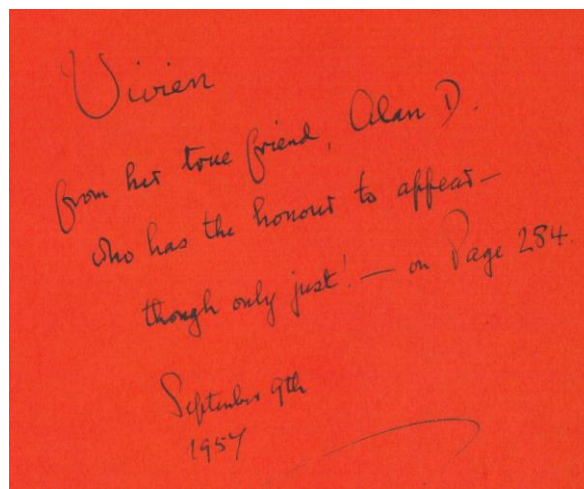 Vivien
from her true friend, Alan D.
who has the honour to appear —
though only just! — on Page 284.
September 9th
1957